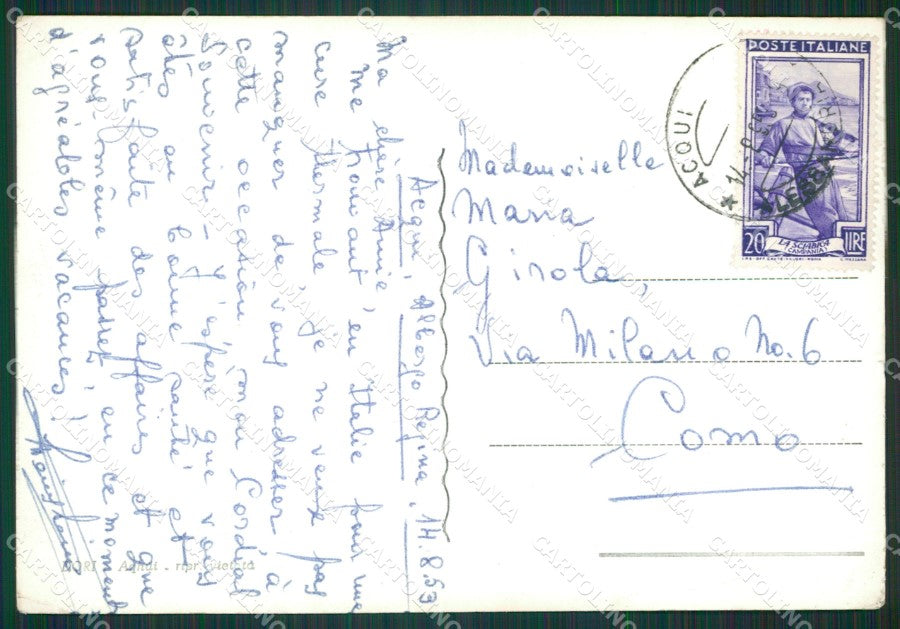 Acqui, Albergo Regina, 14.8.53
Ma chère Amie,
Me trouvant en Italie pour une
cure thermale je ne veux pas
manquer de vous adresser à
cette occasion mon Cordial
Souvenir - J'espère que vous
êtes en bonne santé et
satisfaite des affaires et que
vous même passez en ce moment
d'agréables vacances!
Mademoiselle
Maria
Girola,
Via Milano No. 6
Como
POSTE ITALIANE
LA SCIABICA
CAMPANIA
20 LIRE
ACQUI
ALESSANDRIA
NORI - Acqui - ripr. vietata
CARTOLINOMANIA